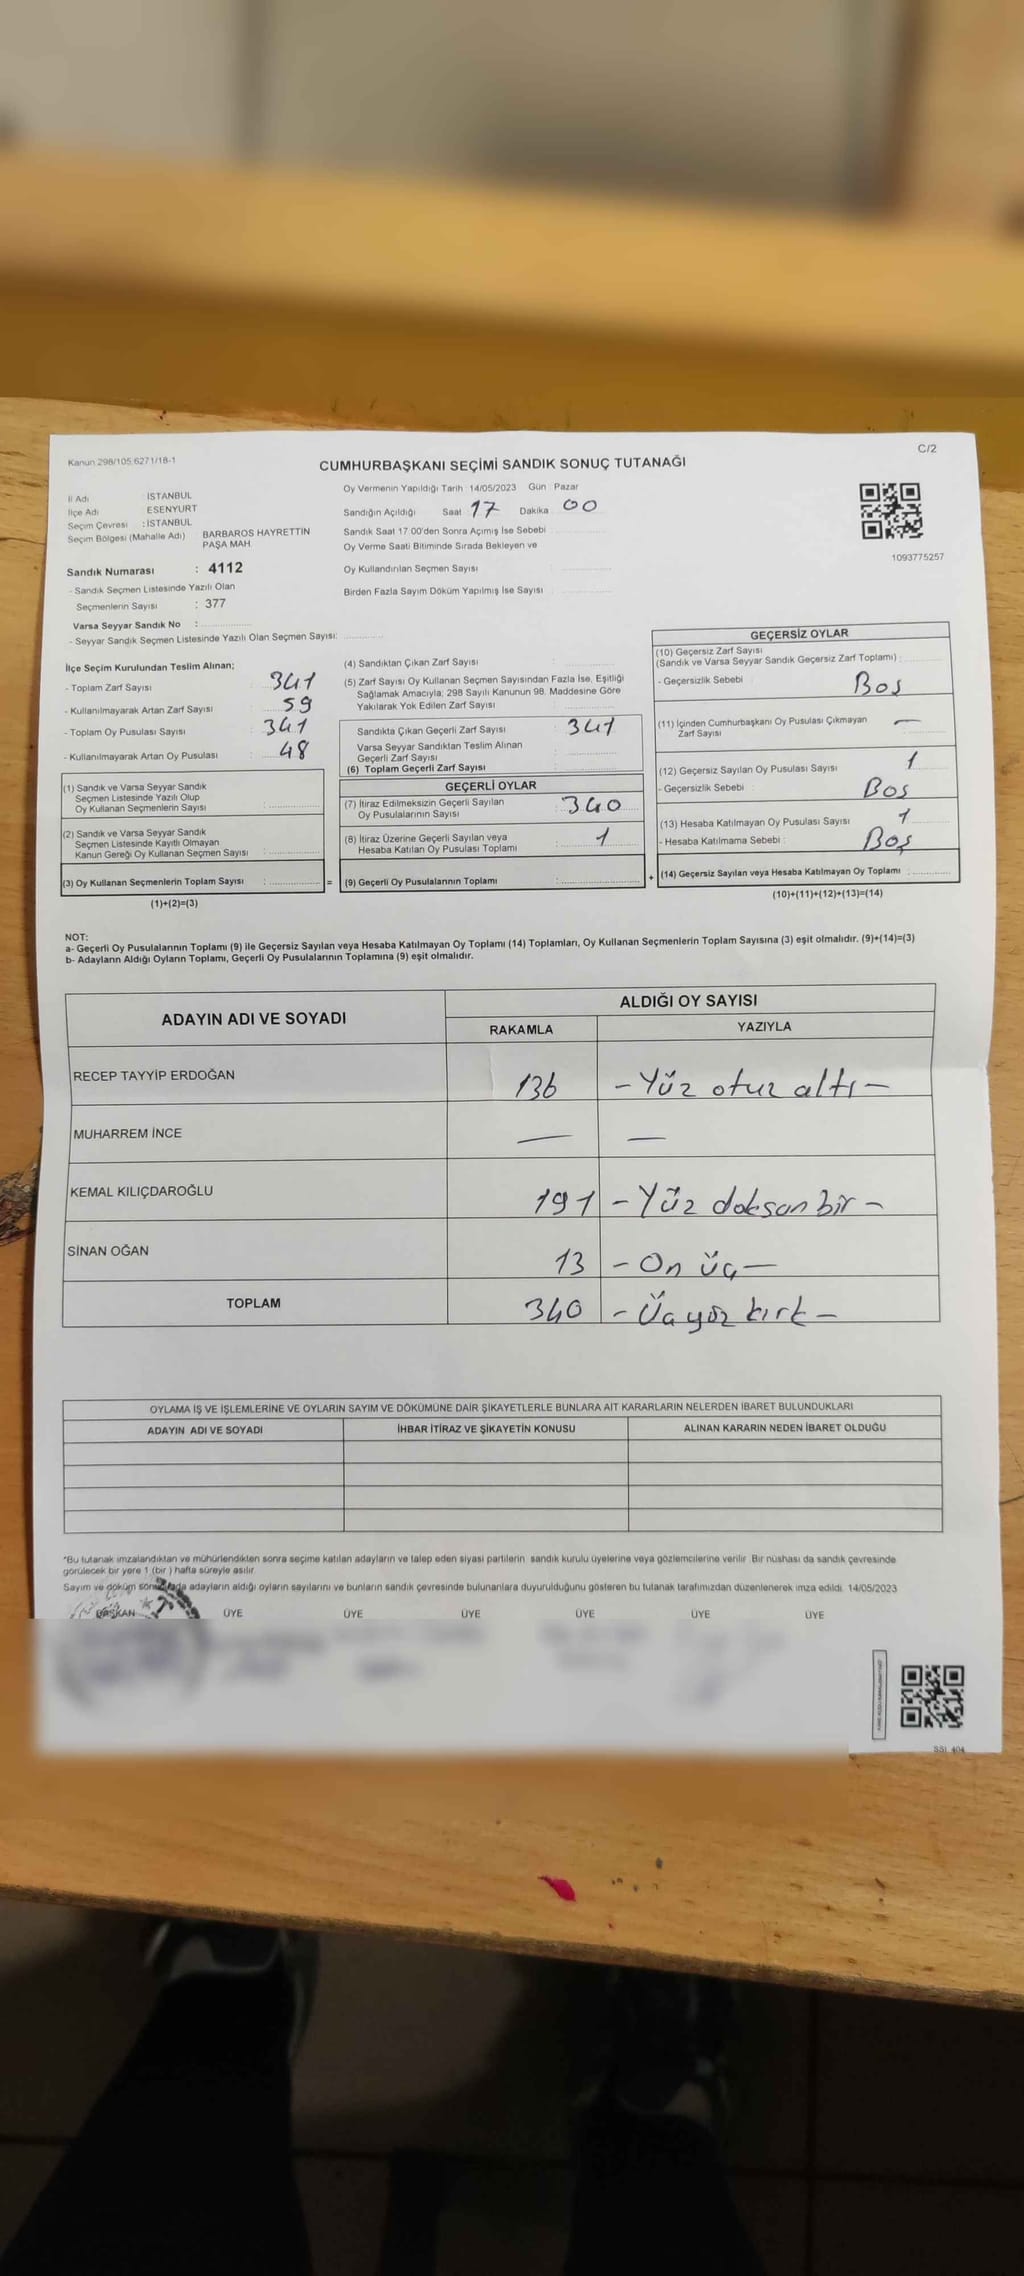 Kanun 298/105,6271/18-1
C/2
CUMHURBAŞKANI SEÇİMİ SANDIK SONUÇ TUTANAĞI
İl Adı : İSTANBUL
İlçe Adı : ESENYURT
Seçim Çevresi : İSTANBUL
Seçim Bölgesi (Mahalle Adı) BARBAROS HAYRETTİN
PAŞA MAH.
Sandık Numarası : 4112
- Sandık Seçmen Listesinde Yazılı Olan
Seçmenlerin Sayısı : 377
Varsa Seyyar Sandık No :
- Seyyar Sandık Seçmen Listesinde Yazılı Olan Seçmen Sayısı:
Oy Vermenin Yapıldığı Tarih : 14/05/2023 Gün : Pazar
Sandığın Açıldığı Saat 17 Dakika 00
Sandık Saat 17:00'den Sonra Açımış İse Sebebi
Oy Verme Saati Bitiminde Sırada Bekleyen ve
Oy Kullandırılan Seçmen Sayısı :
Birden Fazla Sayım Döküm Yapılmış İse Sayısı :
1093775257
İlçe Seçim Kurulundan Teslim Alınan;
- Toplam Zarf Sayısı : 341
- Kullanılmayarak Artan Zarf Sayısı : 59
- Toplam Oy Pusulası Sayısı : 341
- Kullanılmayarak Artan Oy Pusulası : 48
(1) Sandık ve Varsa Seyyar Sandık
Seçmen Listesinde Yazılı Olup
Oy Kullanan Seçmenlerin Sayısı :
(2) Sandık ve Varsa Seyyar Sandık
Seçmen Listesinde Kayıtlı Olmayan
Kanun Gereği Oy Kullanan Seçmen Sayısı :
(3) Oy Kullanan Seçmenlerin Toplam Sayısı : =
(1)+(2)=(3)
(4) Sandıktan Çıkan Zarf Sayısı :
(5) Zarf Sayısı Oy Kullanan Seçmen Sayısından Fazla İse, Eşitliği
Sağlamak Amacıyla; 298 Sayılı Kanunun 98. Maddesine Göre
Yakılarak Yok Edilen Zarf Sayısı :
Sandıkta Çıkan Geçerli Zarf Sayısı : 341
Varsa Seyyar Sandıktan Teslim Alınan
Geçerli Zarf Sayısı :
(6) Toplam Geçerli Zarf Sayısı :
GEÇERLİ OYLAR
(7) İtiraz Edilmeksizin Geçerli Sayılan
Oy Pusulalarının Sayısı : 340
(8) İtiraz Üzerine Geçerli Sayılan veya
Hesaba Katılan Oy Pusulası Toplamı : 1
(9) Geçerli Oy Pusulalarının Toplamı : +
GEÇERSİZ OYLAR
(10) Geçersiz Zarf Sayısı
(Sandık ve Varsa Seyyar Sandık Geçersiz Zarf Toplamı) :
- Geçersizlik Sebebi : Boş
(11) İçinden Cumhurbaşkanı Oy Pusulası Çıkmayan
Zarf Sayısı : —
(12) Geçersiz Sayılan Oy Pusulası Sayısı : 1
- Geçersizlik Sebebi : Boş
(13) Hesaba Katılmayan Oy Pusulası Sayısı : 1
- Hesaba Katılmama Sebebi : Boş
(14) Geçersiz Sayılan veya Hesaba Katılmayan Oy Toplamı :
(10)+(11)+(12)+(13)=(14)
NOT:
a- Geçerli Oy Pusulalarının Toplamı (9) ile Geçersiz Sayılan veya Hesaba Katılmayan Oy Toplamı (14) Toplamları, Oy Kullanan Seçmenlerin Toplam Sayısına (3) eşit olmalıdır. (9)+(14)=(3)
b- Adayların Aldığı Oyların Toplamı, Geçerli Oy Pusulalarının Toplamına (9) eşit olmalıdır.
ADAYIN ADI VE SOYADI
ALDIĞI OY SAYISI
RAKAMLA YAZIYLA
RECEP TAYYİP ERDOĞAN 136 – Yüz otuz altı –
MUHARREM İNCE — —
KEMAL KILIÇDAROĞLU 191 – Yüz doksan bir –
SİNAN OĞAN 13 – On üç –
TOPLAM 340 – Üç yüz kırk –
OYLAMA İŞ VE İŞLEMLERİNE VE OYLARIN SAYIM VE DÖKÜMÜNE DAİR ŞİKAYETLERLE BUNLARA AİT KARARLARIN NELERDEN İBARET BULUNDUKLARI
ADAYIN ADI VE SOYADI İHBAR İTİRAZ VE ŞİKAYETİN KONUSU ALINAN KARARIN NEDEN İBARET OLDUĞU
*Bu tutanak imzalandıktan ve mühürlendikten sonra seçime katılan adayların ve talep eden siyasi partilerin sandık kurulu üyelerine veya gözlemcilerine verilir. Bir nüshası da sandık çevresinde
görülecek bir yere 1 (bir) hafta süreyle asılır.
Sayım ve döküm adayların aldığı oyların sayılarını ve bunların sandık çevresinde bulunanlara duyurulduğunu gösteren bu tutanak tarafımızdan düzenlenerek imza edildi. 14/05/2023
BAŞKAN ÜYE ÜYE ÜYE ÜYE ÜYE ÜYE
SSI 404